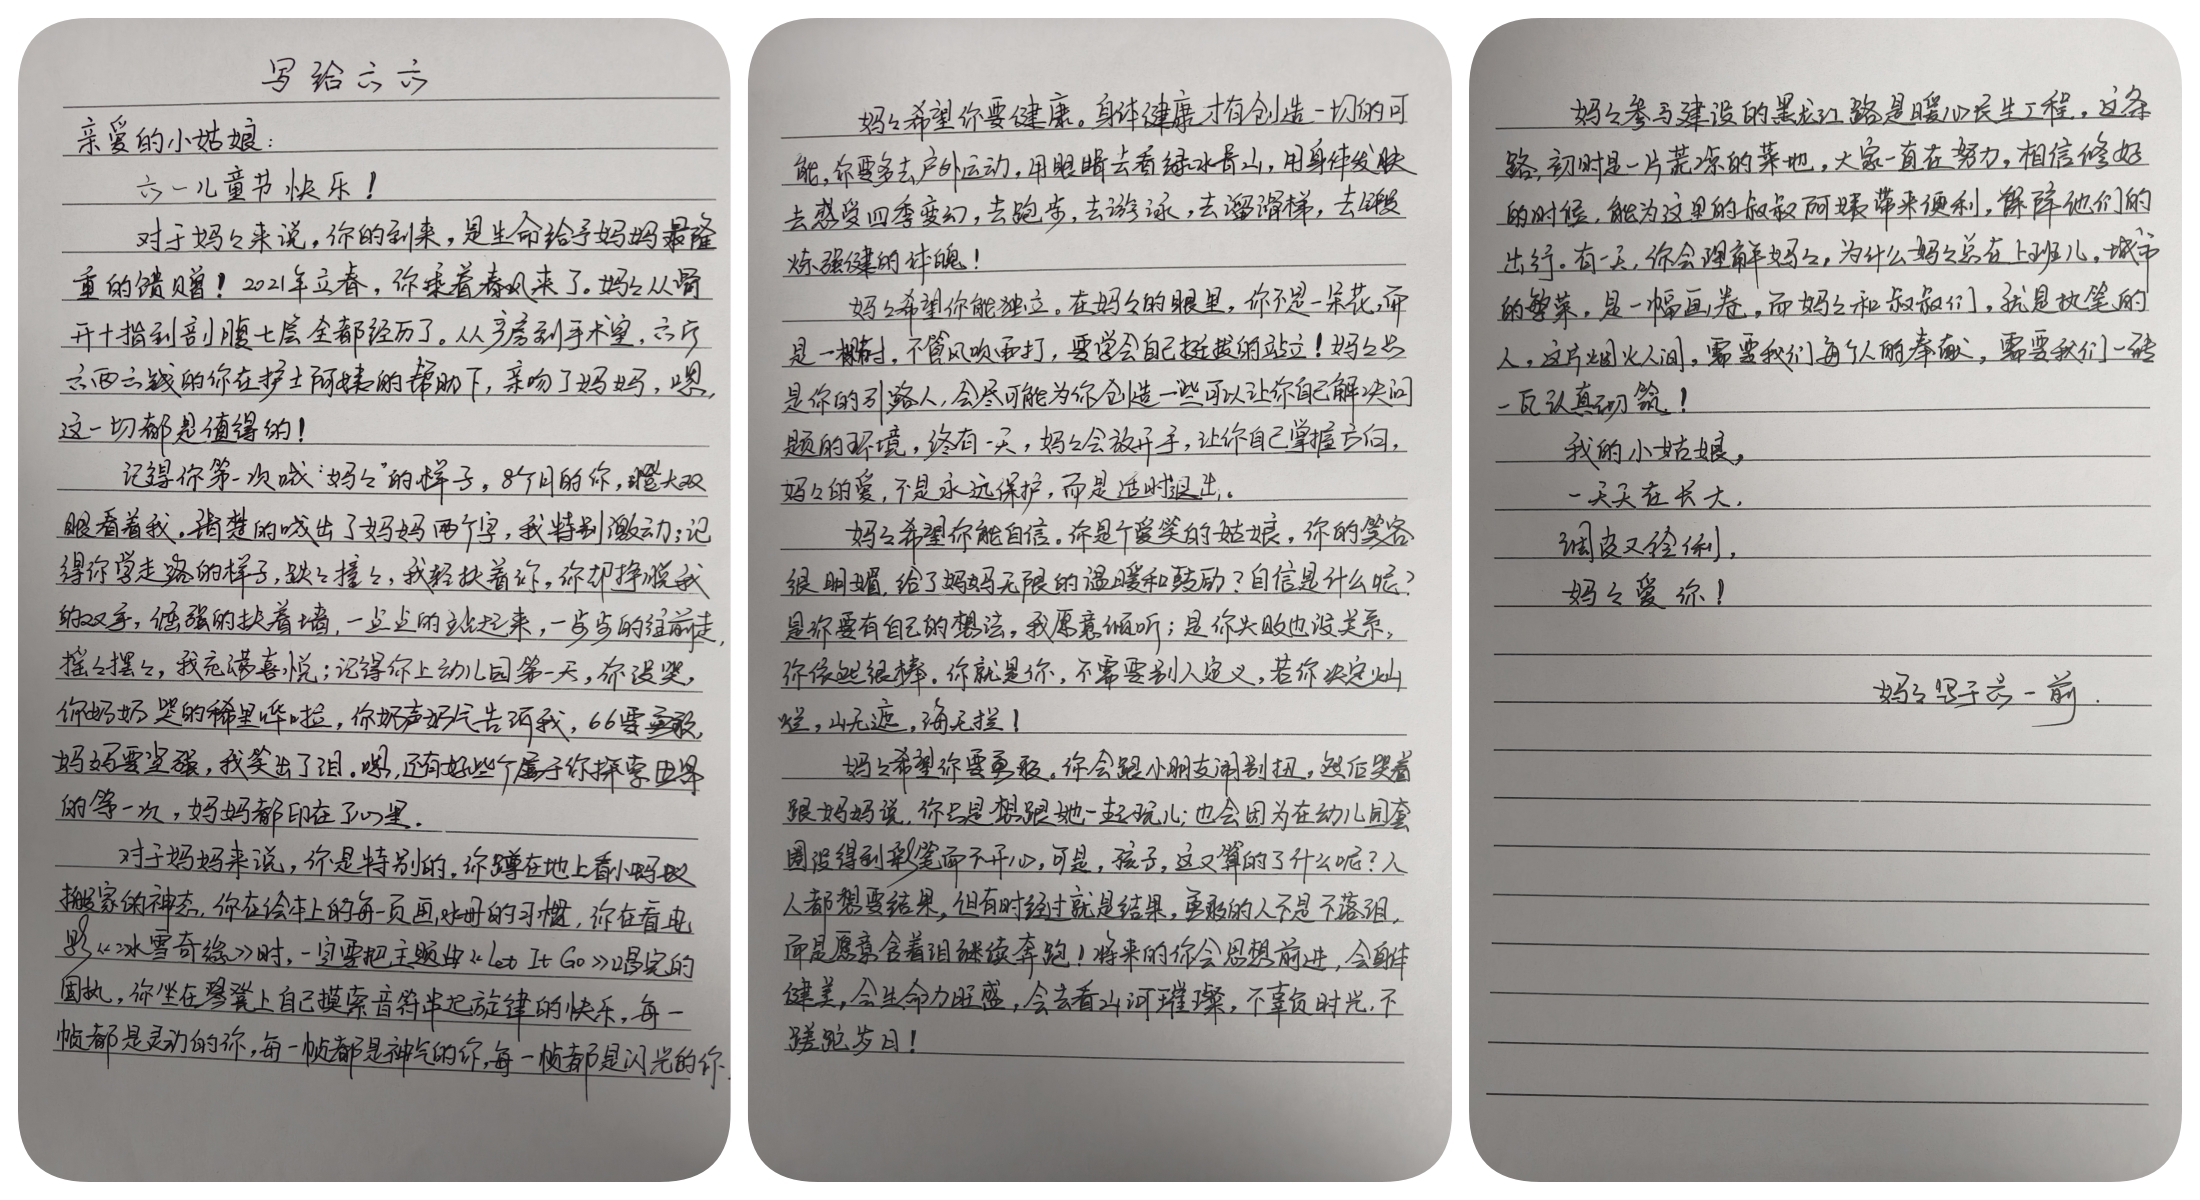 写给六六
亲爱的小姑娘：
六一儿童节快乐！
对于妈々来说，你的到来，是生命给予妈妈最隆
重的馈赠！2021年立春，你乘着春风来了。妈々从骨
开十指到剖腹七层全都经历了。从产房到手术室，六斤
六两六钱的你在护士阿姨的帮助下，亲吻了妈妈，嗯，
这一切都是值得的！
记得你第一次喊“妈々”的样子，8个月的你，瞪大双
眼看着我。清楚的喊出了妈妈两个字，我特别激动；记
得你学走路的样子，跌々撞々，我轻扶着你，你却挣脱我
的双手，倔强的扶着墙，一点点的站起来，一步步的往前走，
摇々摆々，我充满喜悦；记得你上幼儿园第一天，你没哭，
你妈妈哭的稀里哗啦，你奶声奶气告诉我，66要勇敢，
妈妈要坚强，我笑出了泪。嗯，还有好些个属于你探索世界
的第一次，妈妈都印在了心里。
对于妈妈来说，你是特别的。你蹲在地上看小蚂蚁
搬家的神态，你在绘本上的每一页画水母的习惯，你在看电
影《冰雪奇缘》时，一定要把主题曲《Let It Go》唱完的
固执，你坐在琴凳上自己摸索音符串起旋律的快乐，每一
帧都是灵动的你，每一帧都是神气的你，每一帧都是闪光的你。
妈々希望你要健康。身体健康才有创造一切的可
能，你要多去户外运动，用眼睛去看绿水青山，用身体发肤
去感受四季变幻，去跑步，去游泳，去溜滑梯，去锻
炼强健的体魄！
妈々希望你能独立。在妈々的眼里，你不是一朵花，而
是一棵树，不管风吹雨打，要学会自己挺拔的站立！妈々只
是你的引路人，会尽可能为你创造一些可以让你自己解决问
题的环境，终有一天，妈々会放开手，让你自己掌握方向，
妈々的爱，不是永远保护，而是适时退出。
妈々希望你能自信。你是个爱笑的姑娘，你的笑容
很明媚，给了妈妈无限的温暖和鼓励？自信是什么呢？
是你要有自己的想法，我愿意倾听；是你失败也没关系，
你依然很棒。你就是你，不需要别人定义，若你决定灿
烂，山无遮，海无拦！
妈々希望你要勇敢。你会跟小朋友闹别扭，然后哭着
跟妈妈说，你只是想跟她一起玩儿；也会因为在幼儿园套
圈没得到彩笔而不开心，可是，孩子，这又算的了什么呢？人
人都想要结果，但有时经过就是结果，勇敢的人不是不落泪，
而是愿意含着泪继续奔跑！将来的你会思想前进，会身体
健美，会生命力旺盛，会去看山河璀璨，不辜负时光，不
蹉跎岁月！
妈々参与建设的黑龙江路是暖心民生工程，这条
路，初时是一片荒凉的菜地，大家一直在努力，相信修好
的时候，能为这里的叔叔阿姨带来便利，保障他们的
出行。有一天，你会理解妈々，为什么妈々总在上班儿，城市
的繁荣，是一幅画卷，而妈々和叔叔们，就是执笔的
人，这片烟火人间，需要我们每个人的奉献，需要我们一砖
一瓦认真砌筑！
我的小姑娘，
一天天在长大，
调皮又伶俐，
妈々爱你！
妈々写于六一前.